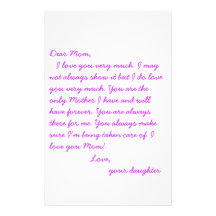 Dear Mom,
I love you very much. I may
not always show it but I do love
you very much. You are the
only Mother I have and will
have forever. You are always
there for me. You always make
sure I'm being taken care of. I
love you Mom!
Love,
your daughter